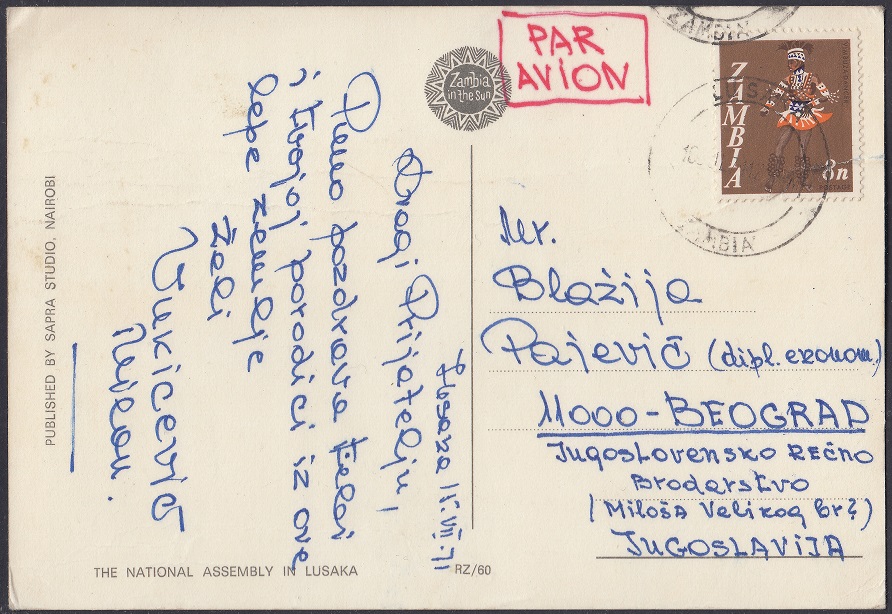 ZAMBIA
PAR
AVION
Zambia
in the Sun
ZAMBIA
8n
POSTAGE
ZAMBIA
Lusaka 15.VII.71
Dragi Prijatelju,
Puno pozdrava tebi
i tvojoj porodici iz ove
lepe zemlje
želi
Vukićević
Milan.
Mr.
Blažija
Pajević (dipl. ekonom.)
11000-BEOGRAD
Jugoslovensko REČNO
Brodarstvo
(Miloša Velikog br?)
JUGOSLAVIJA
PUBLISHED BY SAPRA STUDIO, NAIROBI
THE NATIONAL ASSEMBLY IN LUSAKA
RZ/60